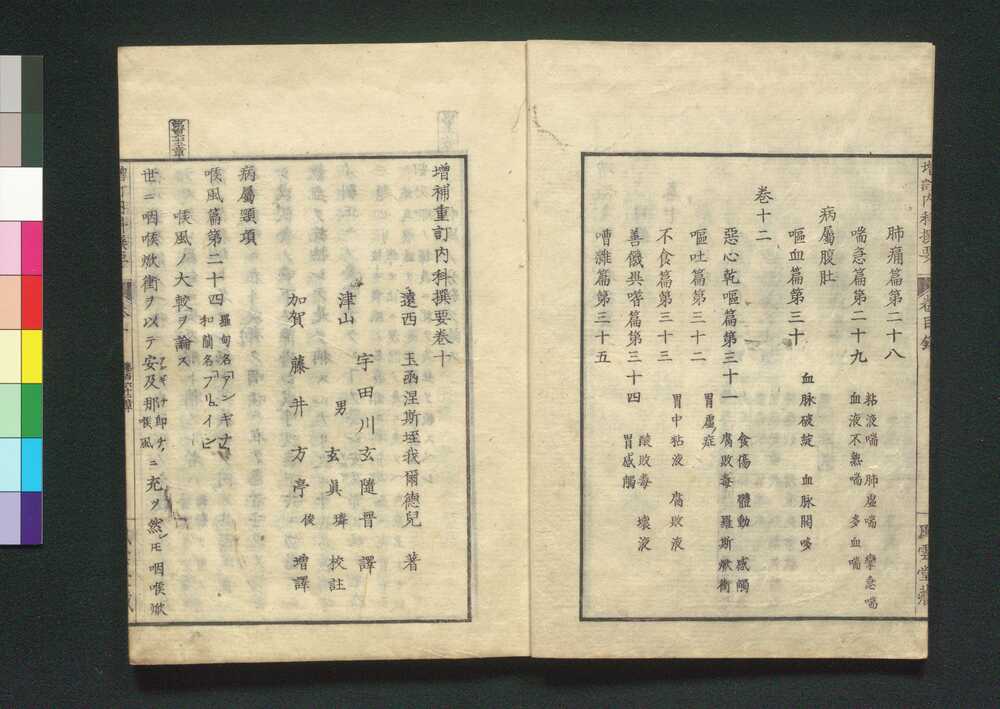 增訂內科撰要
卷目錄
風雲堂藏
肺痛篇第二十八
喘急篇第二十九
粘液喘 肺虛喘 攣急喘
血液不熟喘 多血喘
病屬腹肚
嘔血篇第三十
血脉破綻 血脉開哆
卷十二
惡心乾嘔篇第三十一
食傷 體動 感觸
腐敗毒 羅斯焮衝
嘔吐篇第三十二
胃虛症
不食篇第三十三
胃中粘液 腐敗液
善饑異嗜篇第三十四
酸敗毒 壞液
胃感觸
嘈雜篇第三十五
增補重訂內科撰要卷十
遠西 玉函涅斯垤我爾德兒 著
宇田川玄隨晋 譯
津山
男 玄眞璘 校註
加賀 藤井方亭俊 增譯
病屬頸項
喉風篇第二十四
羅甸名「アンギナ」
和蘭名「フレイン」
喉風ノ大較ヲ論ス
世ニ咽喉焮衝ヲ以テ安及那アンギナ即チ喉風ニ充ツ然レモ咽喉焮